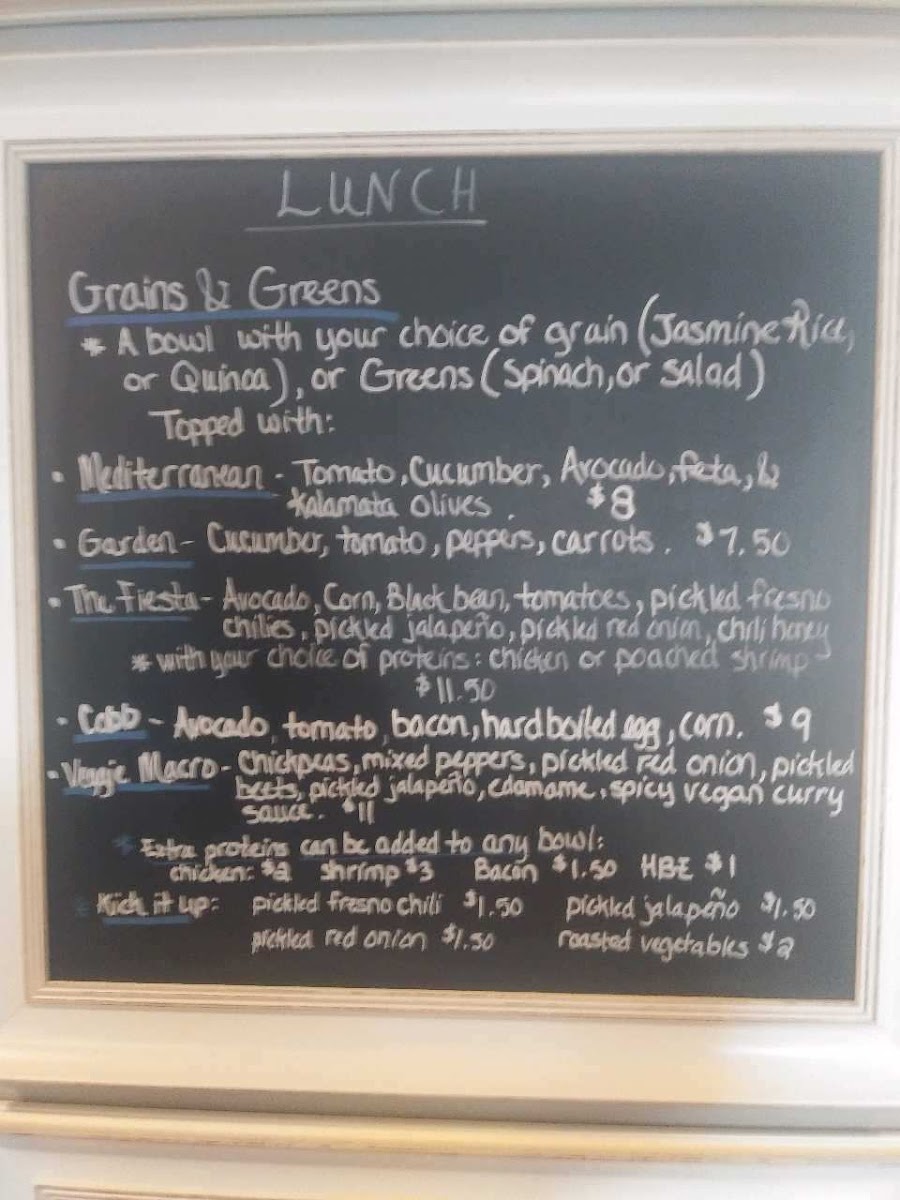 LUNCH
Grains & Greens
* A bowl with your choice of grain (Jasmine Rice,
or Quinoa), or Greens (Spinach, or Salad)
Topped with:
• Mediterranean - Tomato, Cucumber, Avocado, feta, &
Kalamata olives. $8
• Garden - Cucumber, tomato, peppers, carrots. $7.50
• The Fiesta - Avocado, Corn, Black bean, tomatoes, pickled fresno
chilies, pickled jalapeño, pickled red onion, chili honey
* with your choice of proteins: chicken or poached shrimp
$11.50
• Cobb - Avocado, tomato, bacon, hard boiled egg, corn. $9
• Veggie Macro - Chickpeas, mixed peppers, pickled red onion, pickled
beets, pickled jalapeño, edamame, spicy vegan curry
sauce. $11
* Extra proteins can be added to any bowl:
chicken: $2 shrimp $3 Bacon $1.50 HBE $1
* Kick it up: pickled fresno chili $1.50 pickled jalapeño $1.50
pickled red onion $1.50 roasted vegetables $2